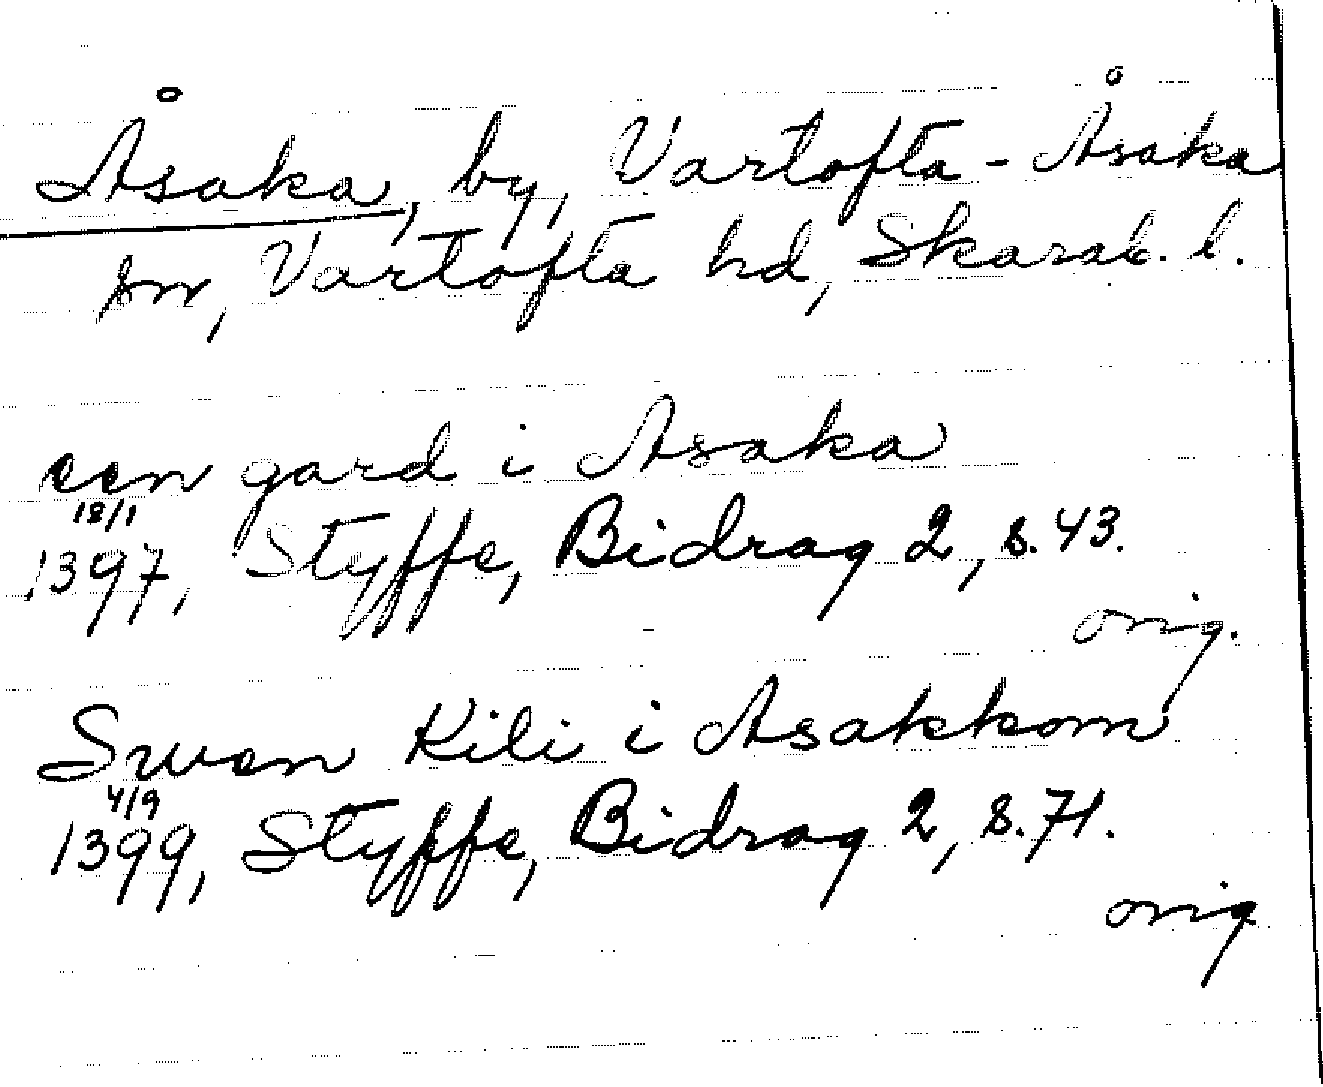 Åsaka, by, Vartofta-Åsaka
sn, Vartofta hd, Skarab. l.
een gard i Asaka
18/1
1397, Styffe, Bidrag 2, s. 43.
orig.
Swen Kili i Asakkom
4/9
1399, Styffe, Bidrag 2, s. 71.
orig